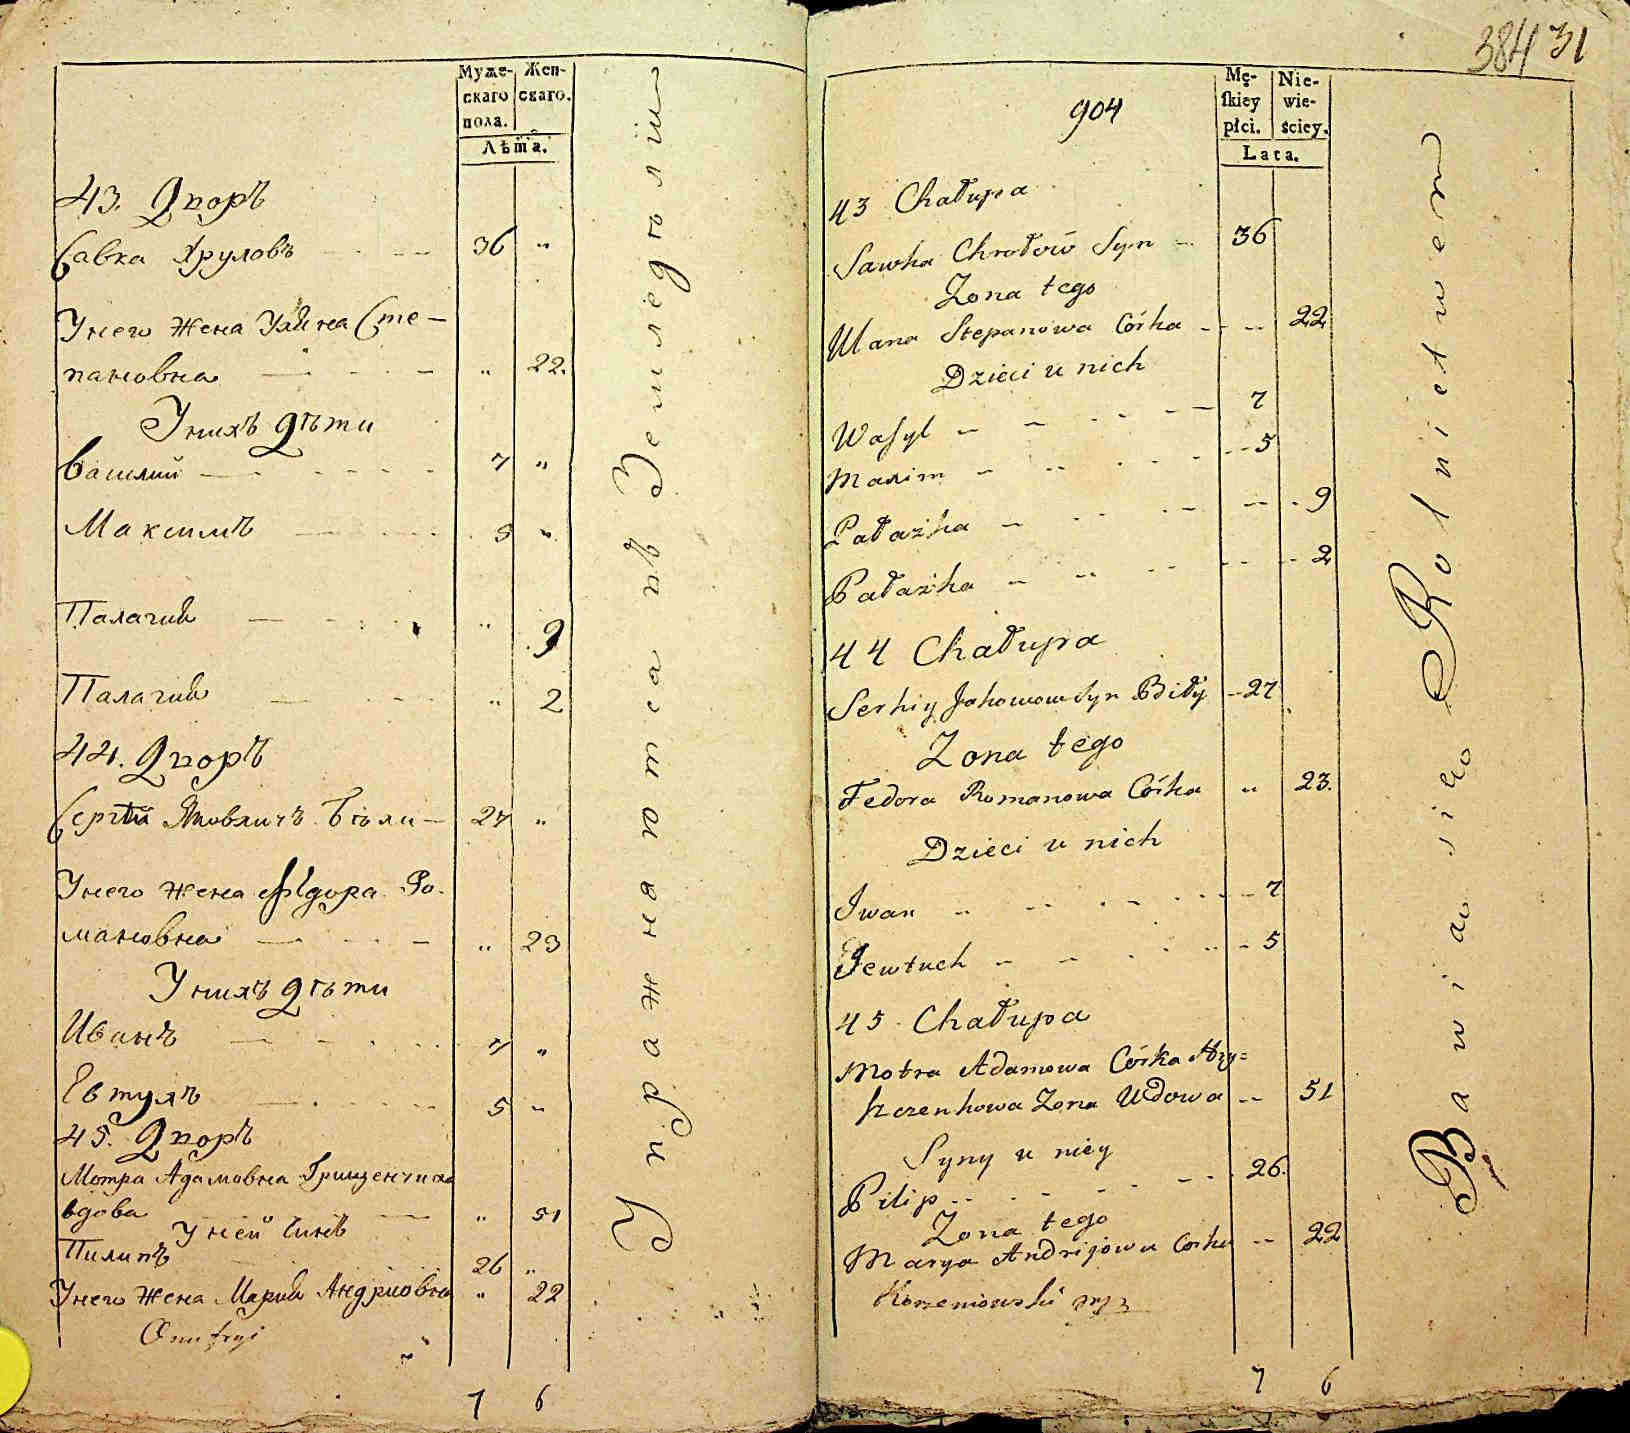 Муже-
скаго
пола.
Жен-
скаго.
Лѣта.
43. Дворъ
Савка Хруловъ 36 "
У него жена Ульяна Сте-
пановна " 22.
У нихъ дѣти
Василий 7 "
Максимъ 5 "
Палагия " 9
Палагия " 2
44. Дворъ
Сергѣй Яковличъ Бѣли 27 "
У него жена Фѣдора Ро-
мановна " 23
У нихъ дѣти
Иванъ 7 "
Евтухъ 5 "
45. Дворъ
Мотра Адамовна Грищенчиха
вдова " 51
У ней синъ
Пилипъ 26 "
У него жена Мария Андриовна " 22
Onufryi
7 6
Упражнаютса въ Земледѣлии
384 31
904
Mę-
skiey
płci.
Nie-
wie-
ściey.
Lata.
43 Chałupa
Sawka Chrołow Syn 36
Zona tego
Ulana Stepanowa Córka 22
Dzieci u nich
Wasyl 7
Maxim 5
Pałażka 9
Pałażka 2
44 Chałupa
Serhiy Jakowow Syn Biły 27
Zona tego
Fedora Romanowa Córka " 23.
Dzieci u nich
Iwan 7
Jewtuch 5
45 Chałupa
Motra Adamowa Córka Hry=
szczenkowa Zona Wdowa 51
Syny u niey
Pilip 26.
Zona tego
Marya Andrijowa Corka 22
Korzeniowski
7 6
Bawiaw sieę Rolnictwem